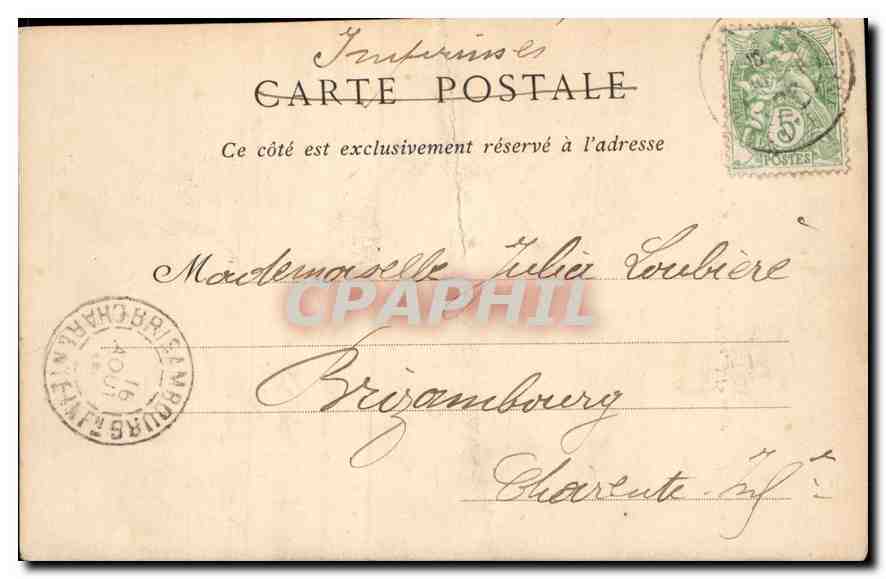 Imprimés
CARTE POSTALE
Ce côté est exclusivement réservé à l'adresse
5
POSTES
Mademoiselle Julia Loubière
CPAPHIL
Brizambourg
Charente Infre
BRISAMBOURG CHARENTE INFRE
16
AOUT